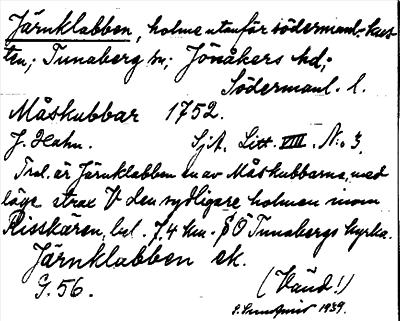 Järnklabben, holme utanför södermanl.-kus-
ten; Tunaberg sn; Jönåkers hd;
Södermanl. l.
Måskubbar 1752.
J. Hahn. Sjk. Litt. VIII. No 3.
Trol. är Järnklabben en av Måskubbarna, med
läge strax V den sydligare holmen inom
Risskären, bel. 7,4 km. SO Tunabergs kyrka.
Järnklabben ek.
G. 56. (Vänd!)
1939.